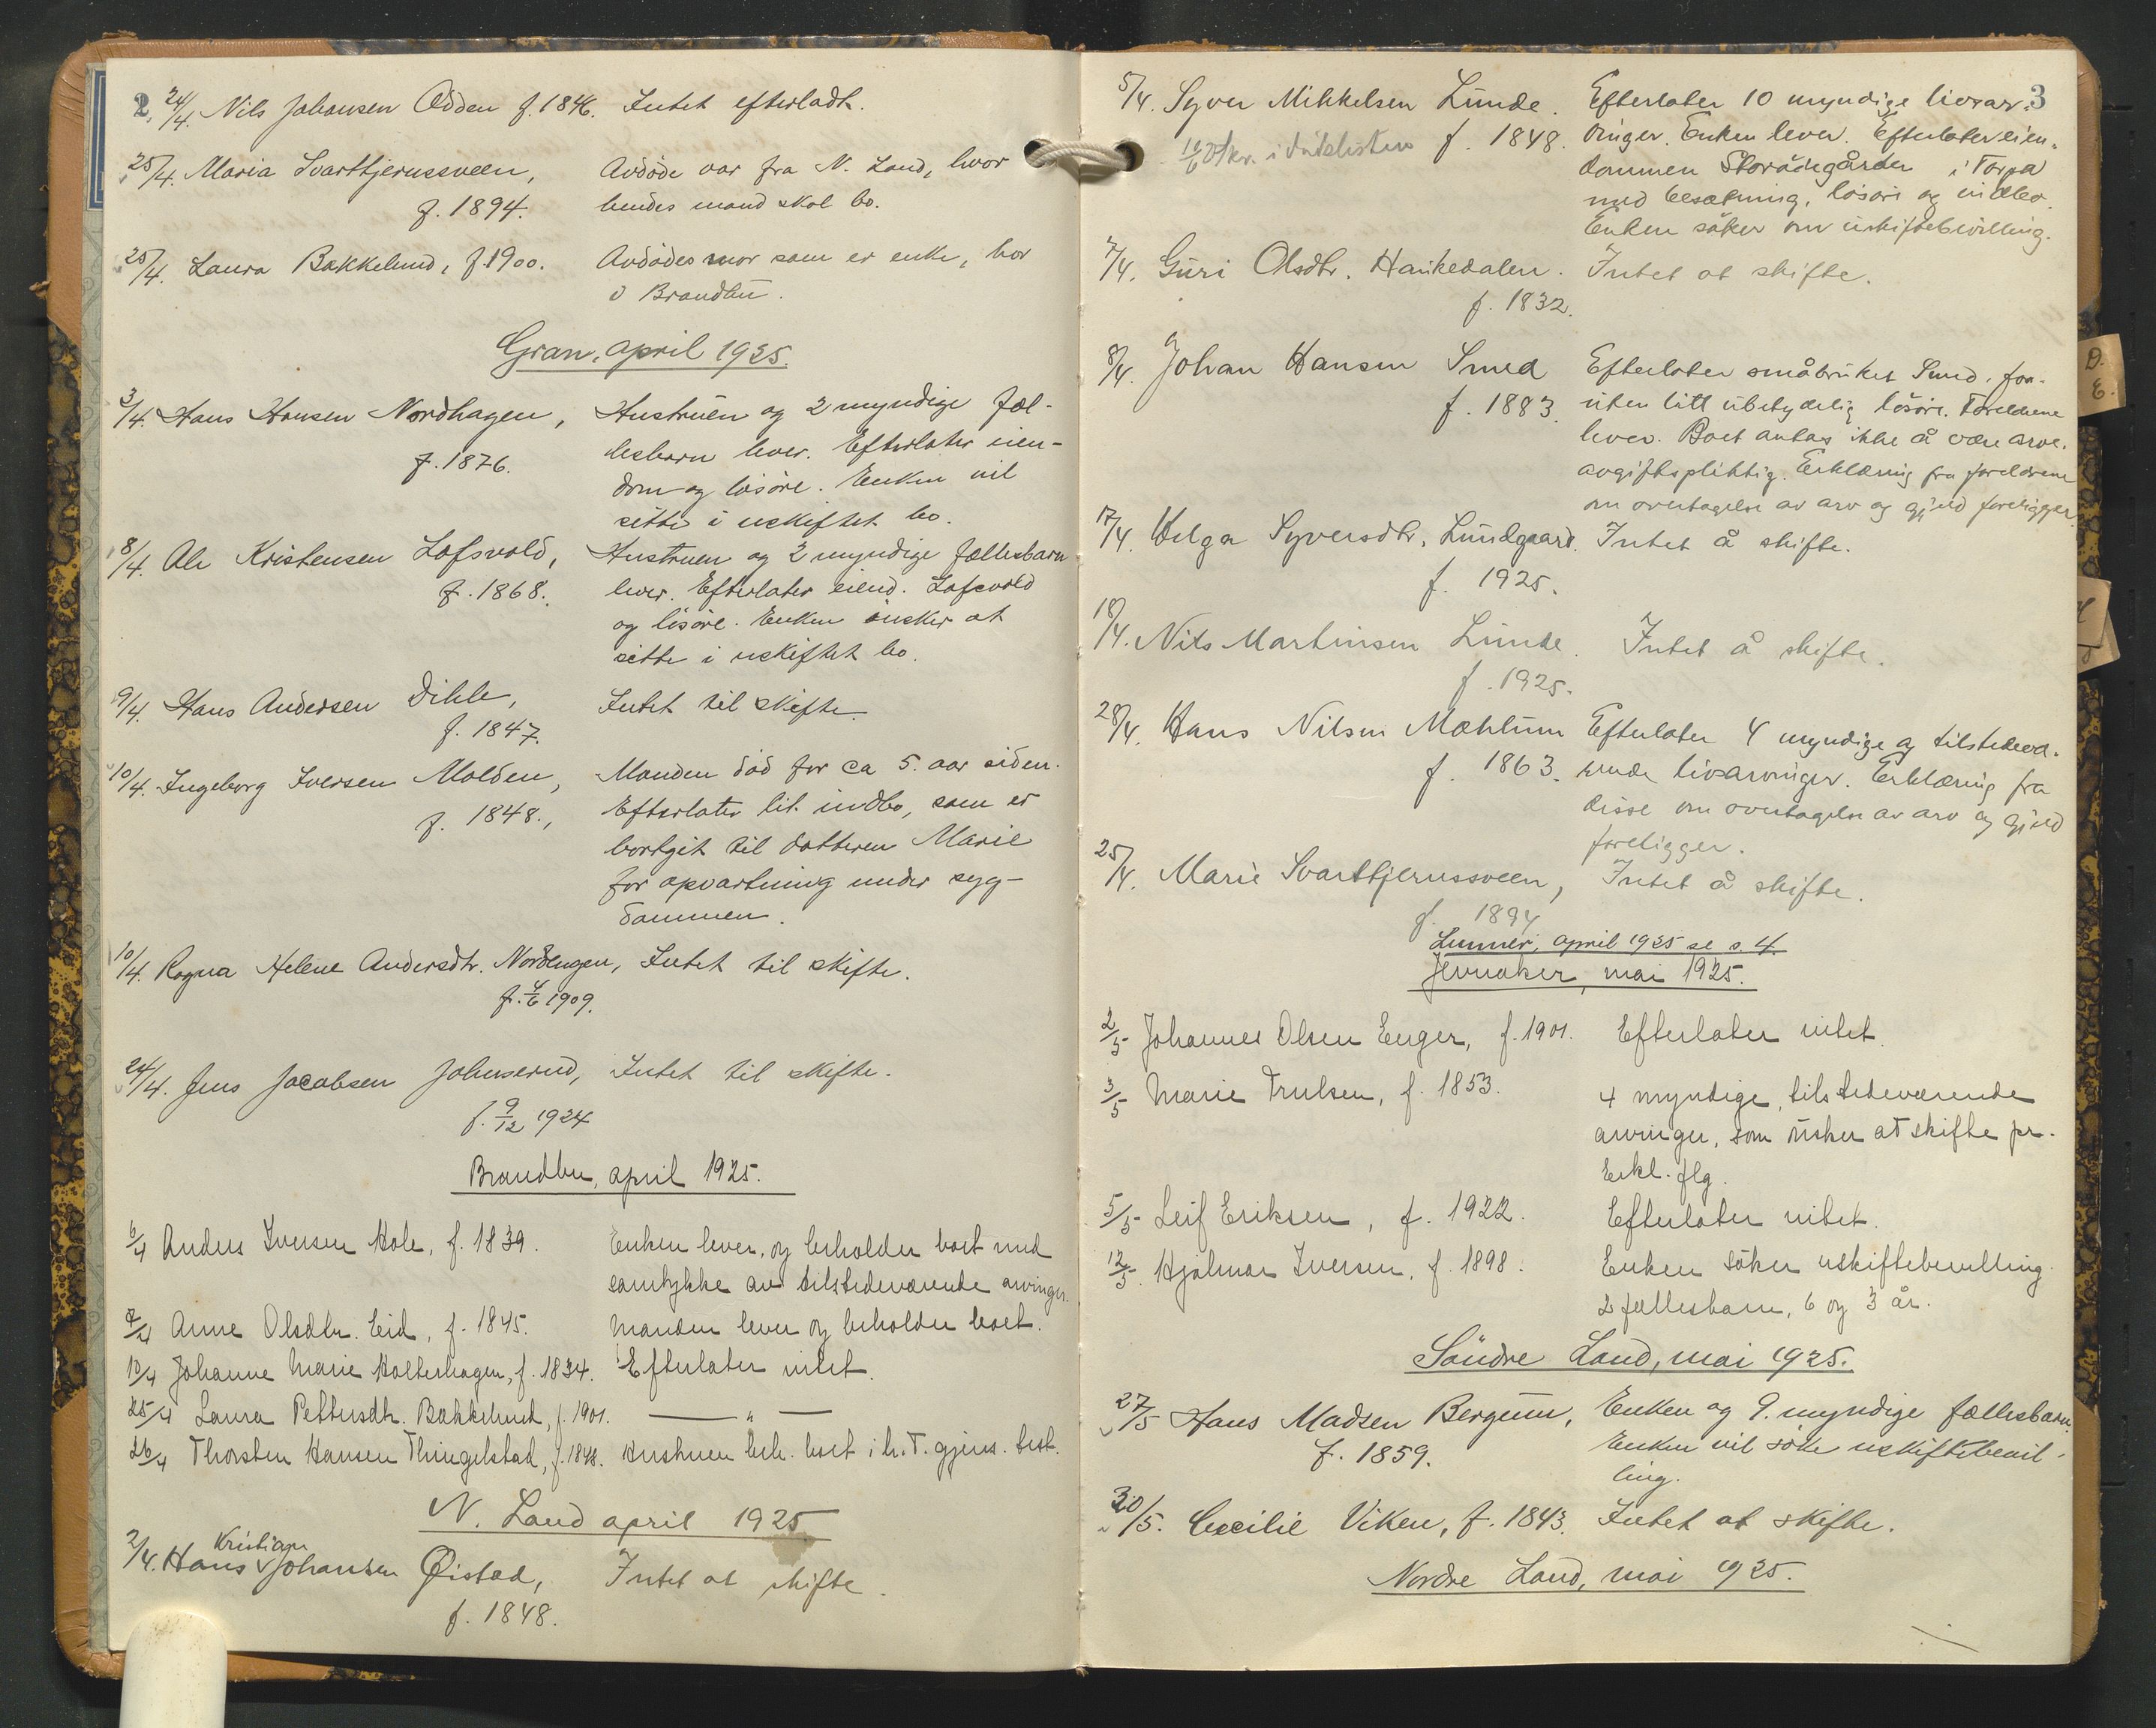 2.
24/4. Nils Johansen Odden f. 1846. Intet efterladt.
25/4. Maria Svarttjernssveen, Avdöde var fra N. Land, hvor
f. 1894. hendes mand skal bo.
25/4. Laura Bakkelund, f. 1900. Avdödes mor som er enke, bor
i Brandbu.
Gran, april 1925.
3/4. Hans Hansen Nordhagen, Hustruen og 2 myndige fæl-
f. 1876. lesbarn lever. Efterlater eien-
dom og lösöre. Enken vil
sitte i uskiftet bo.
8/4. Ole Kristensen Lofsvold, Hustruen og 3 myndige fællesbarn
f. 1868. lever. Efterlater eiend. Lofsvold
og lösöre. Enken önsker at
sitte i uskiftet bo.
9/4. Hans Andersen Dihle, Intet til skifte.
f. 1847.
10/4. Ingeborg Iversen Molden, Manden död for ca 5. aar siden.
f. 1848., Efterlater lit indbo, som er
bortgit til datteren Marie
for opvartning under syg-
dommen.
10/4. Ragna Helene Andersdtr. Nordengen, Intet til skifte.
f. 4/6 1909.
24/4. Jens Jacobsen Johnserud, Intet til skifte.
f. 9/12 1924
Brandbu, april 1925.
6/4 Anders Iversen Hole, f. 1839. Enken lever, og beholder boet med
samtykke av tilstedeværende arvinger.
7/4 Anne Olsdtr. Eid, f. 1845. Manden lever og beholder boet.
10/4 Johanne Marie Holterhagen, f. 1834. Efterlater intet.
25/4 Laura Pettersdtr. Bakkelund, f. 1901. — " —
26/4 Thorsten Hansen Thingelstad, f. 1848. Hustruen beh. boet i h. T. gjens. test.
N. Land april 1925
Kristian
2/4. Hans v Johansen Øistad, Intet at skifte.
f. 1848.
3
5/4. Syver Mikkelsen Lunde. Efterlater 10 myndige livsar-
f. 1848. vinger. Enken lever. Efterlater eien-
dommen Storödegården i Torpa
med besætning, lösöre og indbo.
Enken söker om uskiftebevilling.
7/4. Guri Olsdtr. Haukedalen. Intet at skifte.
f. 1832.
8/4. Johan Hansen Smed Efterlater småbruket Smed, for-
f. 1883. uten litt ubetydelig lösöre. Foreldrene
lever. Boet antas ikke å være arve-
avgiftspliktig. Erklæring fra foreldrene
om overtagelse av arv og gjeld foreligger.
17/4. Helga Syversdtr. Lundgaard. Intet å skifte.
f. 1925.
18/4. Nils Martinsen Lunde. Intet å skifte.
f. 1925.
28/4. Hans Nilsen Mæhlum Efterlater 4 myndige og tilstedevæ-
f. 1863. rende livsarvinger. Erklæring fra
disse om overtagelse av arv og gjeld
foreligger.
25/4. Marie Svarttjernssveen, Intet å skifte.
f. 1894
Lunner, april 1925 se s. 4.
Jevnaker, mai 1925.
2/5 Johannes Olsen Enger, f. 1901. Efterlater intet.
3/5 Marie Trulsen, f. 1853. 4 myndige, tilstedeværende
arvinger, som önsker at skifte pr.
Erkl. flg.
5/5 Leif Eriksen, f. 1922. Efterlater intet.
12/5. Hjalmar Iversen, f. 1898. Enken söker uskiftebevilling.
2 fællesbarn, 6 og 3 år.
Söndre Land, mai 1925.
27/5 Hans Madsen Bergum, Enken og 9. myndige fællesbarn.
f. 1859. Enken vil söke uskiftebevil-
ling.
30/5. Cecilie Viken, f. 1843. Intet at skifte.
Nordre Land, mai 1925.
D.
E.